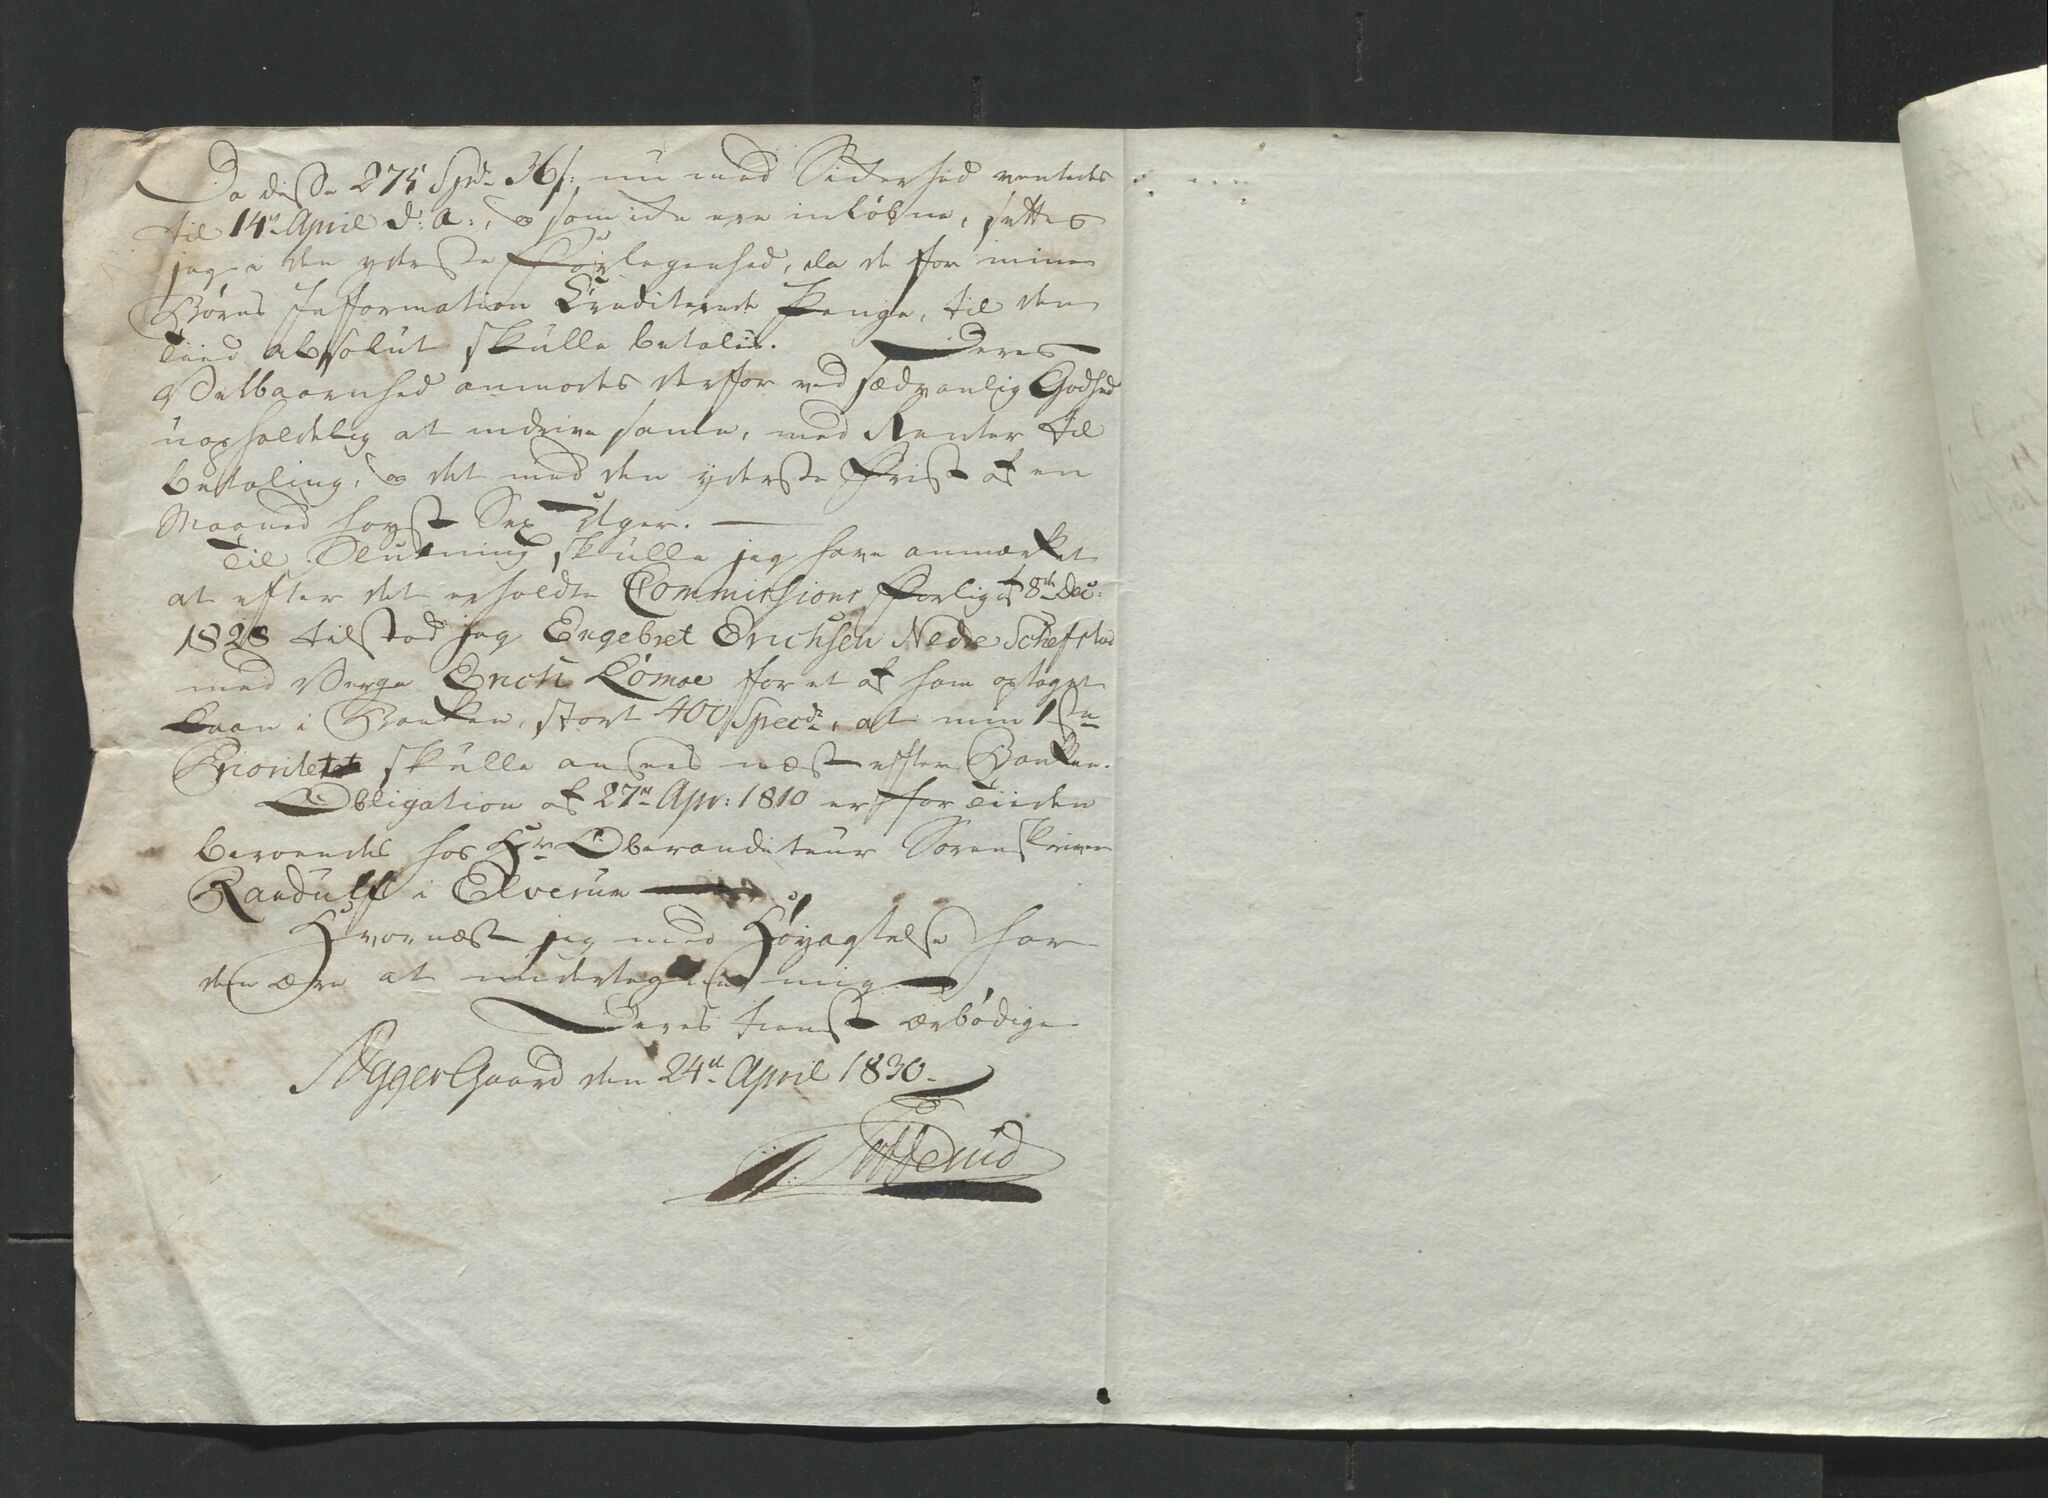 Da disse 275 Spd 36 s: nu med Sikerhed ventedes
til 14de April d: A:, og som ikke ere indløbne, sættes
jeg i den yderste Forlegenhed, da de for mine
Børns Information Crediterede Penge, til den
Tiid absolut skulle betales. Deres
Velbaarenhed anmodes derfor ved sædvanlig Godhed
uopholdelig at inddrive samme, med Renter til
betaling, og det med den yderste Frist af en
Maaned høyst Sex Uger. —
Til Slutning skulle jeg have anmærket
at efter det erholdte Commissions Forlig af 8de Dec:
1828 tilstod jeg Engebret Erichsen Nedre Schefstad
med Verge Erich Lømoe for et af ham optaget
Laan i Banken, stort 400 Specd, at min 1ste
Prioritet skulle ansees næst efter Banken.
Obligation af 27de Apr: 1810 er for Tiiden
beroendes hos Hr Oberauditeur Sorenskriver
Randulff i Elverum —
Hvornæst jeg med Høyagtelse har
den ære at undertegne mig
Deres tienst ærbødige
Aggersgaard den 24de April 1830.